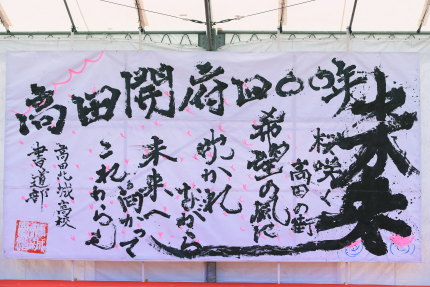 高田開府四〇〇年
未来
桜咲く
高田の町
希望の風に
吹かれ
ながら
未来へ
向かって
これからも
高田北城高校
書道部